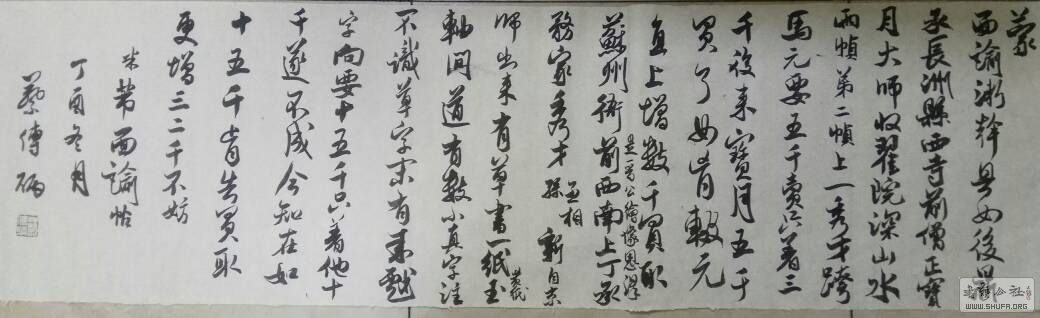 蒙
面諭浙幹具如後
承長洲縣西寺前僧正寶
月大師收翟院深山水
兩幀第二幀上一秀才跨
馬元要五千賣只著三
千後來寶月五千
買了如肯轍元
直上增數千買取
是晉公繪像恩澤
蘇州衙前西南上丁承
務家秀才丞相孫新自京
師出來有草書一紙黃紙玉
軸間道有數小真字注
不識草字末有來戲
字向要十五千只著他十
千遂不成今知在如
十五千肯告買取
更增三二千不妨
米芾面諭帖
丁酉冬月
蔡傳炳
書法公社
WWW.SHUFA.ORG